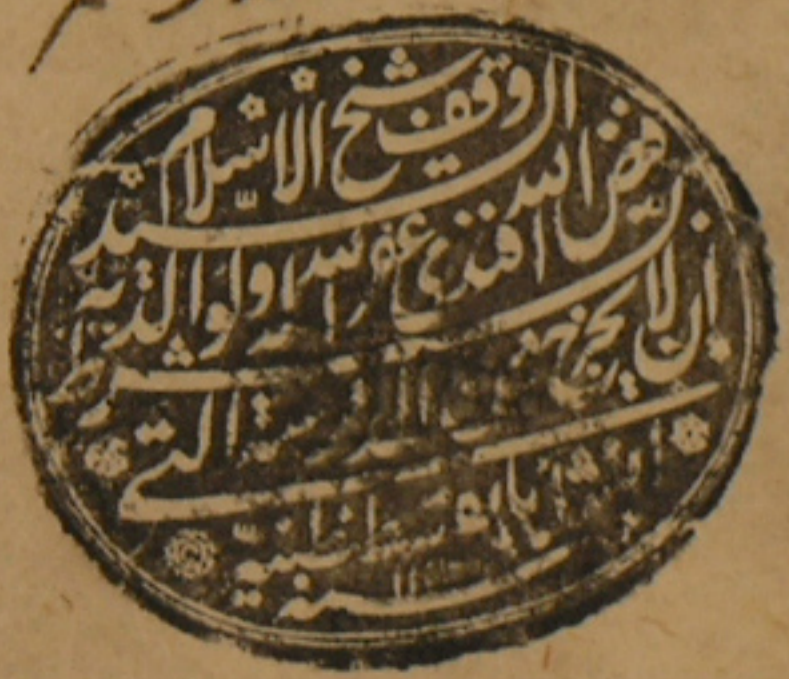 وقف شيخ الاسلام السيد
فيض الله افندي غفر الله له ولوالديه
بشرط ان لا يخرج من المدرسة التي
انشأها بقسطنطينية
سنه